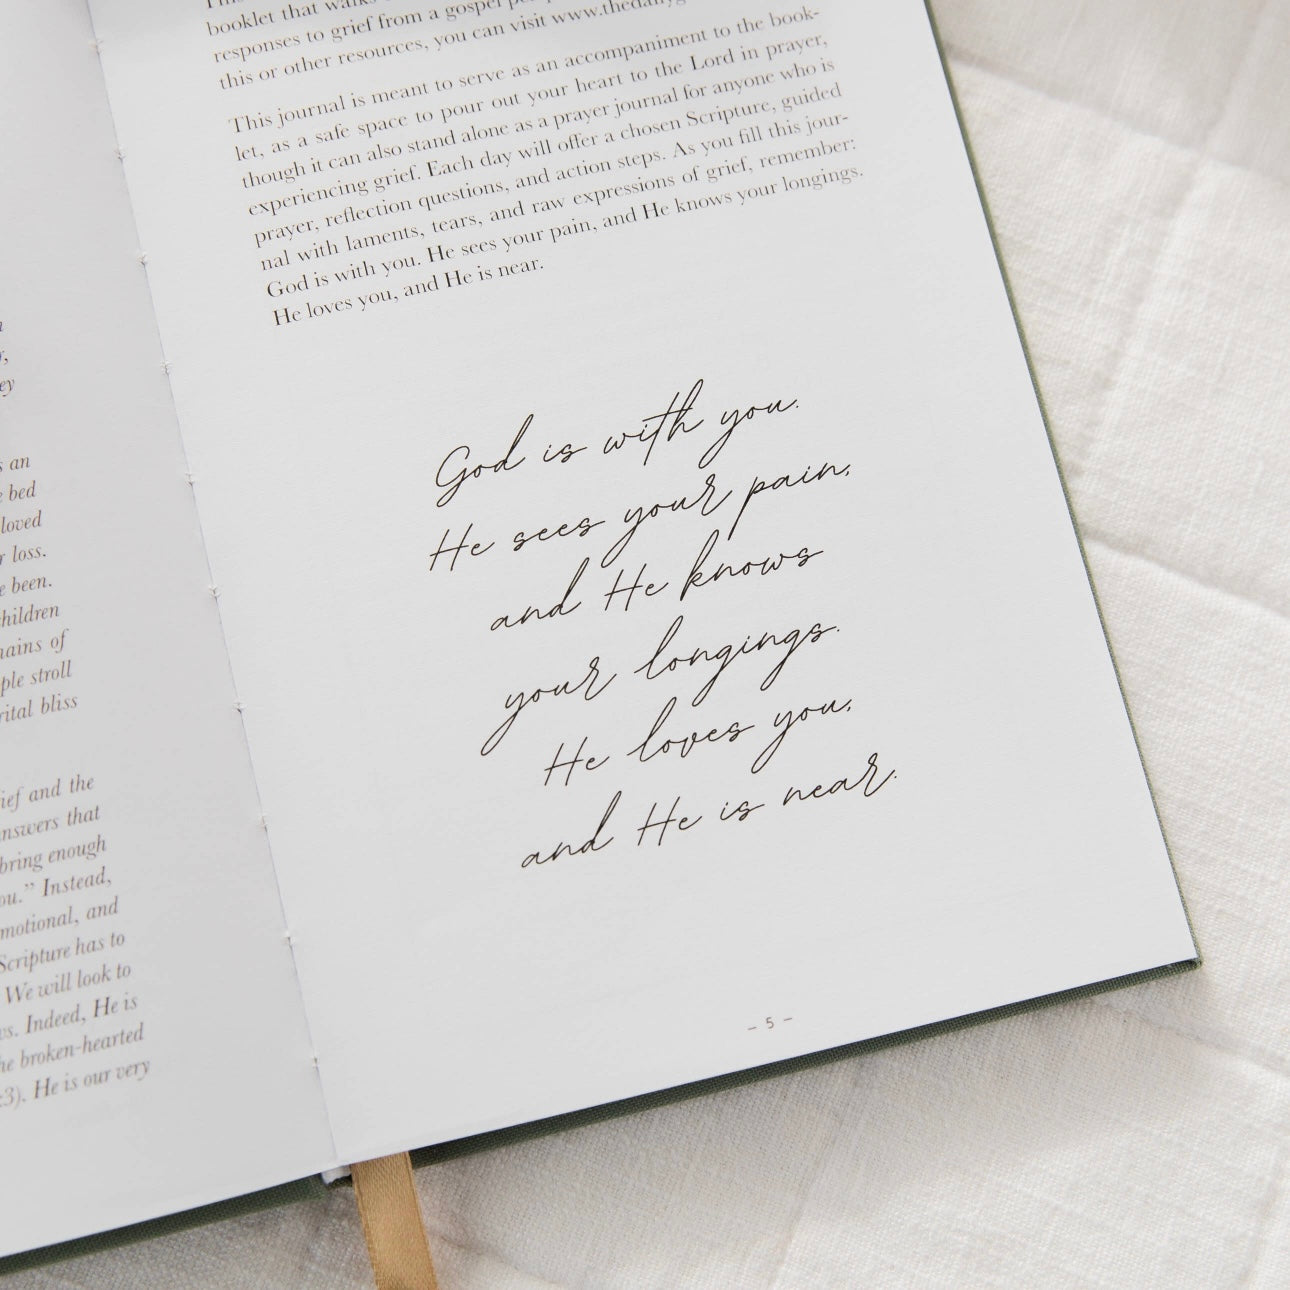 n
y,
ey
s an
e bed
loved
r loss.
e been.
children
ains of
ple stroll
rital bliss
ief and the
answers that
bring enough
ou.” Instead,
motional, and
Scripture has to
We will look to
vs. Indeed, He is
he broken-hearted
:3). He is our very
booklet that walks
responses to grief from a gospel
this or other resources, you can visit www.thedaily
This journal is meant to serve as an accompaniment to the book-
let, as a safe space to pour out your heart to the Lord in prayer,
though it can also stand alone as a prayer journal for anyone who is
experiencing grief. Each day will offer a chosen Scripture, guided
prayer, reflection questions, and action steps. As you fill this jour-
nal with laments, tears, and raw expressions of grief, remember:
God is with you. He sees your pain, and He knows your longings.
He loves you, and He is near.
God is with you.
He sees your pain,
and He knows
your longings.
He loves you,
and He is near.
– 5 –